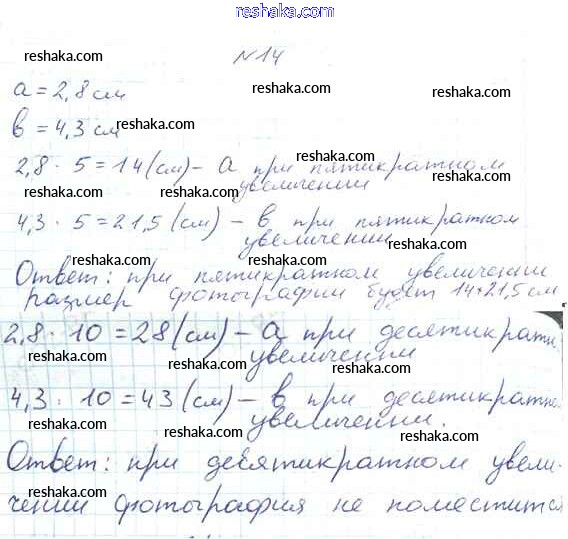 reshaka.com
№14
reshaka.com
reshaka.com
a = 2,8 см
reshaka.com
reshaka.com
в = 4,3 см
reshaka.com
2,8 · 5 = 14 (см) – a при пятикратном
reshaka.com
увеличении
reshaka.com
reshaka.com
4,3 · 5 = 21,5 (см) – в при пятикратном
увеличении
reshaka.com
reshaka.com
Ответ: при пятикратном увеличении
размер фотографии будет 14×21,5 см
reshaka.com
reshaka.com
2,8 · 10 = 28 (см) – a при десятикратн
увеличении
reshaka.com
reshaka.com
reshaka.com
4,3 · 10 = 43 (см) – в при десятикратн
увеличении.
reshaka.com
reshaka.com
reshaka.com
Ответ: при десятикратном увели-
reshaka.com
reshaka.com
чении фотография не поместится
reshaka.com
reshaka.com